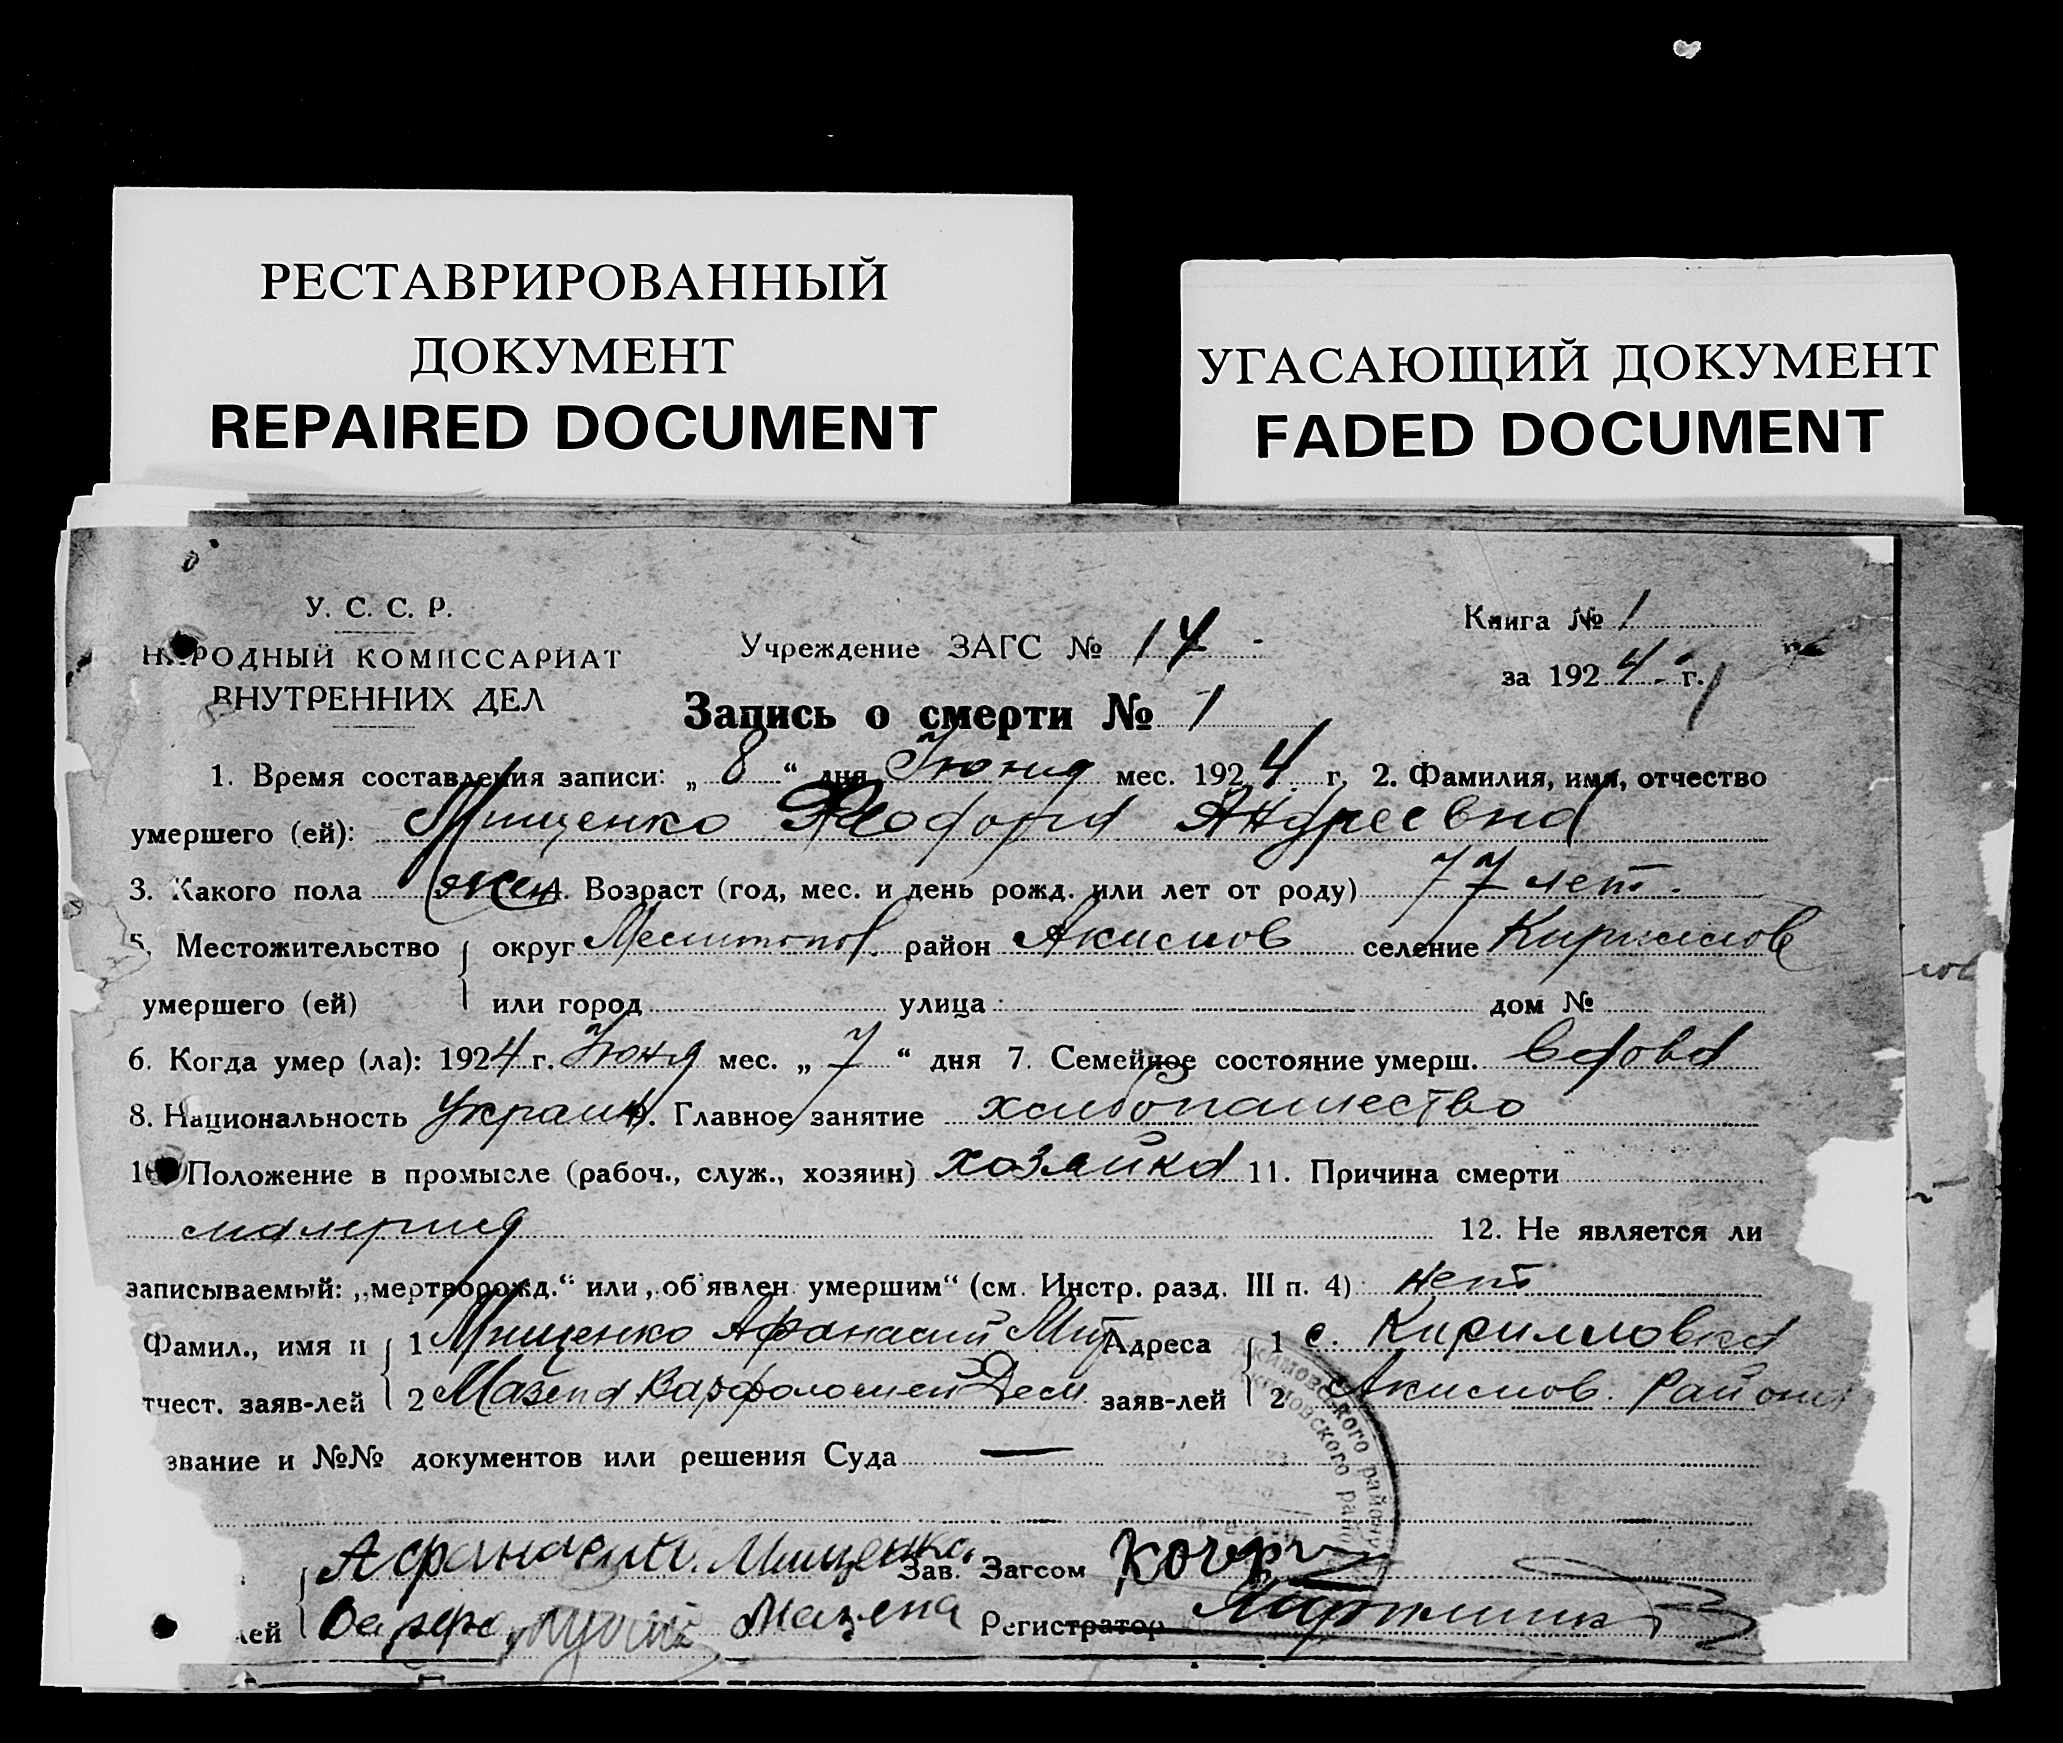 РЕСТАВРИРОВАННЫЙ
ДОКУМЕНТ
REPAIRED DOCUMENT
УГАСАЮЩИЙ ДОКУМЕНТ
FADED DOCUMENT
У. С. С. Р.
НАРОДНЫЙ КОМИССАРИАТ
ВНУТРЕННИХ ДЕЛ
Учреждение ЗАГС № 14
Книга № 1
за 1924 г.
Запись о смерти № 1
1. Время составления записи: „ 8 “ дня Июня мес. 1924 г. 2. Фамилия, имя, отчество
умершего (ей): Мищенко Феодора Андреевна
3. Какого пола жен 4. Возраст (год, мес. и день рожд. или лет от роду) 77 лет.
5. Местожительство округ Мелитопол. район Акимов селение Кириллов
умершего (ей) или город улица дом №
6. Когда умер (ла): 1924 г. Июня мес. „ 7 “ дня 7. Семейное состояние умерш. вдова
8. Национальность Украин 9. Главное занятие хлебопашество
10 Положение в промысле (рабоч., служ., хозяин) хозяйка 11. Причина смерти
малерия 12. Не является ли
записываемый: „мертворожд.“ или „об'явлен умершим“ (см. Инстр. разд. III п. 4) нет
Фамил., имя и 1 Мищенко Афанасий Мит Адреса 1 с. Кирилловка
тчест. заяв-лей 2 Мазепа Варфоломей Дем заяв-лей 2 Акимов. района
звание и №№ документов или решения Суда —
Акимовського району
Акимовского рай
Афанасий Мищенко Зав. Загсом
лей Мазепа Регистратор